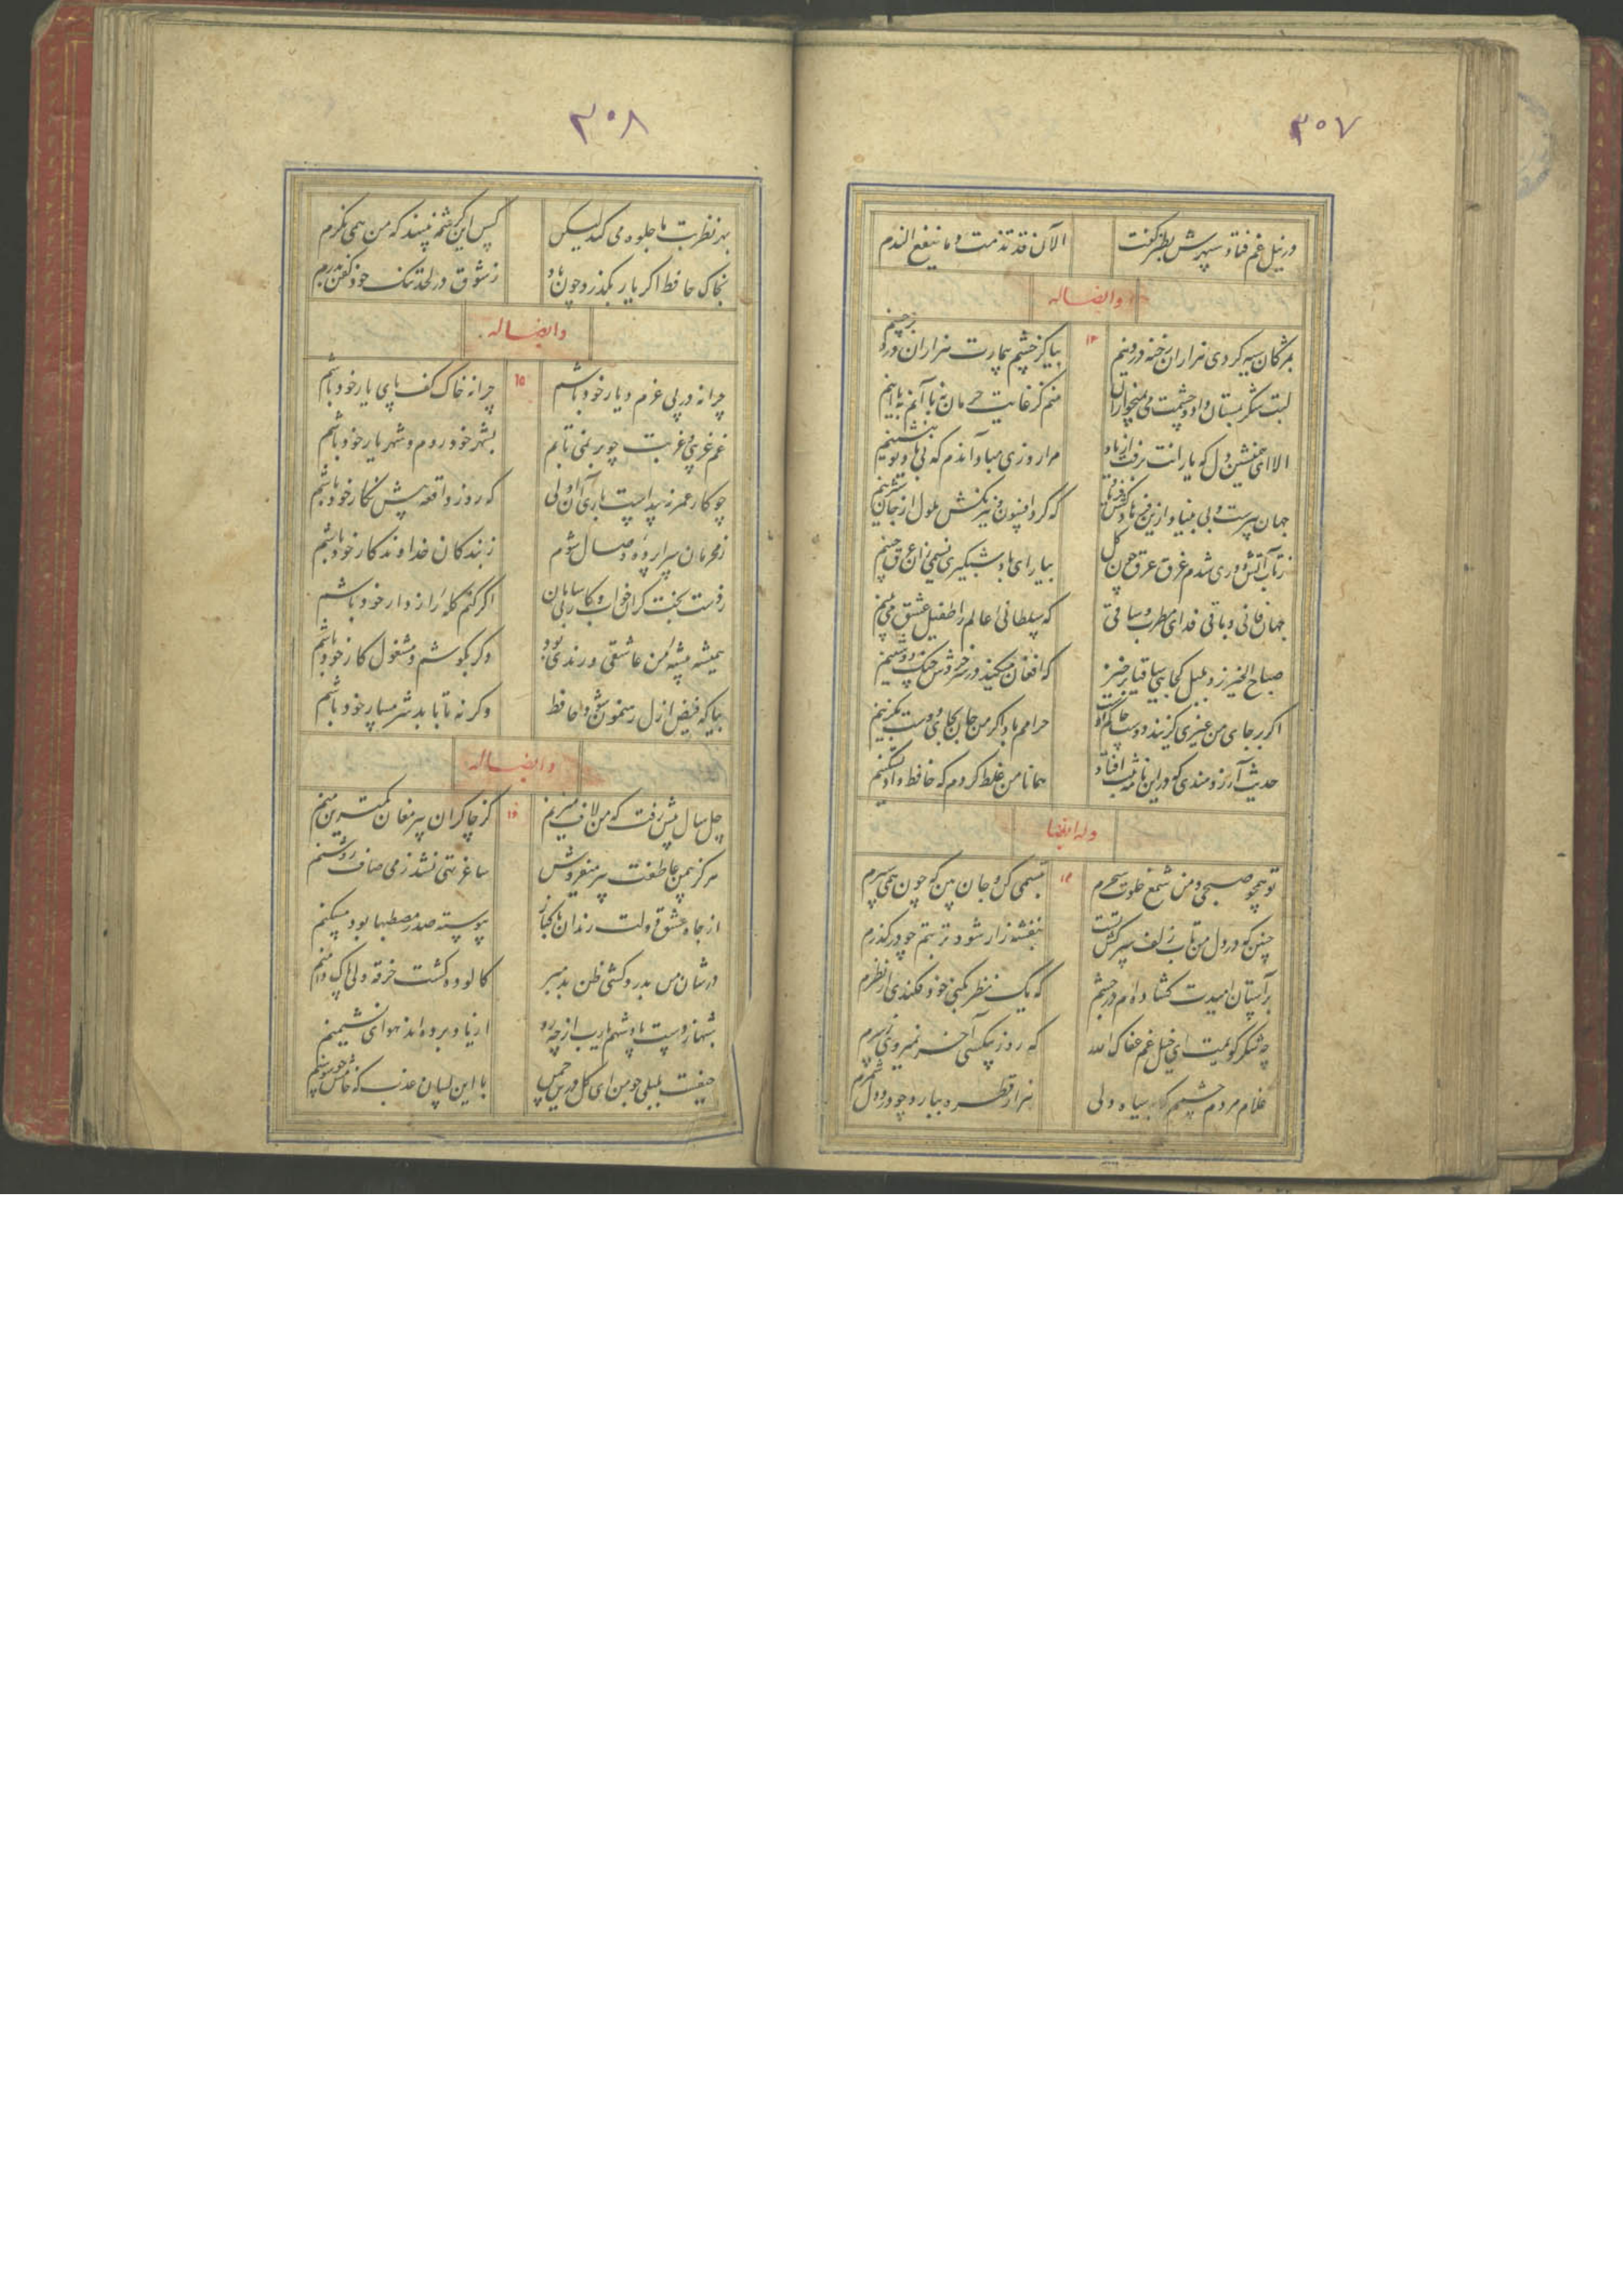 ۳۰۷
در نیل غم فتاد سپهرش بطنز گفت الآن قد ندمت و ما ینفع الندم
وایضاله
بمژگان سیه کردی هزاران رخنه در دینم ۱۳ بیا کز چشم بیمارت هزاران درد برچینم
لبت شکر بمستان داد و چشمت می بمیخواران منم کز غایت حرمان نه با آنم نه با اینم
الا ای همنشین دل که یارانت برفت از یاد مرا روزی مباد آندم که بی یاد تو بنشینم
جهان پیرست و بی بنیاد ازین فرهادکش فریاد که کرد افسون و نیرنگش ملول از جان شیرینم
ز تاب آتش دوری شدم غرق عرق چون گل بیار ای باد شبگیری نسیمی زان عرق چینم
جهان فانی و باقی فدای مطرب و ساقی که سلطانی عالم را طفیل عشق می بینم
صباح الخیر زد بلبل کجایی ساقیا برخیز که افغان میکند در سر خروش چنگ دوشینم
اگر بر جای من غیری گزیند دوست حاکم اوست حرامم باد اگر من جان بجای دوست بگزینم
حدیث آرزومندی که در این نامه ثبت افتاد همانا من غلط کردم که حافظ داد تسکینم
وله ایضا
تو همچو صبحی و من شمع خلوت سحرم ۱۴ تبسمی کن و جان بین که چون همی سپرم
چنین که در دل من تاب زلف سرکش تست بنفشه زار شود تربتم چو درگذرم
بر آستان امیدت گشاده ام در چشم که یک نظر فکنی خود فکندی از نظرم
چه شکر گویمت ای خیل غم عفاک الله که روز بیکسی آخر نمیروی ز سرم
غلام مردم چشمم که با سیاه دلی هزار قطره ببارد چو درد دل شمرم
۳۰۸
بهر نظر بت ما جلوه می کند لیکن کس این کرشمه نبیند که من همی نگرم
بخاک حافظ اگر یار بگذرد چون باد ز شوق در لحد تنگ خود کفن بدرم
وایضاله
چرا نه در پی عزم دیار خود باشم ۱۵ چرا نه خاک کف پای یار خود باشم
غم غریبی و غربت چو بر نمی تابم بشهر خود روم و شهریار خود باشم
چو کار عمر نه پیداست باری آن اولی که روز واقعه پیش نگار خود باشم
ز محرمان سراپرده وصال شوم ز بندگان خداوندگار خود باشم
ز دست بخت گران خواب و کار بی سامان اگر کنم گله راز دار خود باشم
همیشه پیشه من عاشقی و رندی بود دگر بکوشم و مشغول کار خود باشم
بیا که فیض ازل رهنمون شود حافظ وگرنه تا بابد شرمسار خود باشم
وایضاله
چل سال بیش رفت که من لاف میزنم ۱۶ کز چاکران پیر مغان کمترین منم
هرگز بیمن عاطفت پیر میفروش ساغر تهی نشد ز می صاف روشنم
از جاه عشق و دولت رندان پاکباز پیوسته صدر مصطبها بود مسکنم
در شان من بدردکشی ظن بد مبر کالوده گشت خرقه ولی پاک دامنم
شهباز دست پادشهم یارب از چه رو از یاد برده اند هوای نشیمنم
حیفست بلبلی چو من ای گل درین قفس با این لسان عذب که خامش چو سوسنم